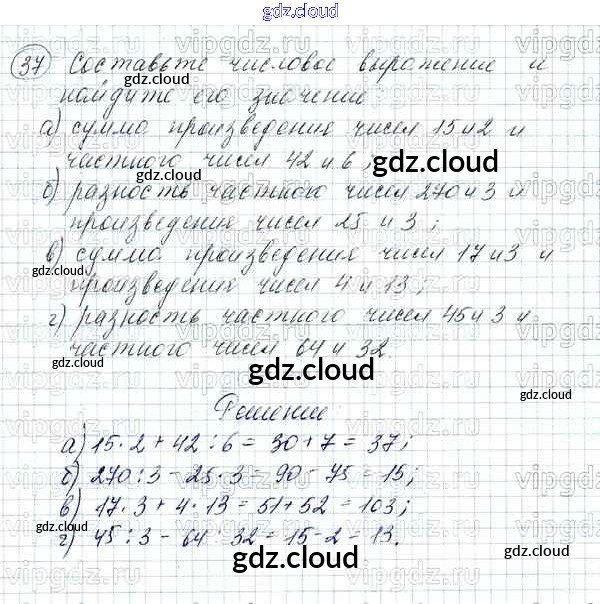 gdz.cloud
37 Составьте числовое выражение и
найдите его значение:
а) сумма произведения чисел 15 и 2 и
частного чисел 42 и 6;
б) разность частного чисел 270 и 3 и
произведения чисел 25 и 3;
в) сумма произведения чисел 17 и 3 и
произведения чисел 4 и 13;
г) разность частного чисел 45 и 3 и
частного чисел 64 и 32
Решение:
а) 15 · 2 + 42 : 6 = 30 + 7 = 37;
б) 270 : 3 - 25 · 3 = 90 - 75 = 15;
в) 17 · 3 + 4 · 13 = 51 + 52 = 103;
г) 45 : 3 - 64 : 32 = 15 - 2 = 13.